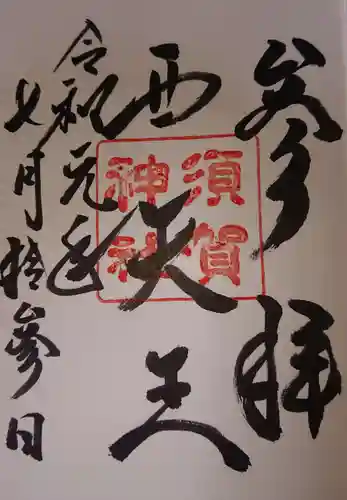 参拝
西天王
須賀
神社
令和元年
七月拾参日